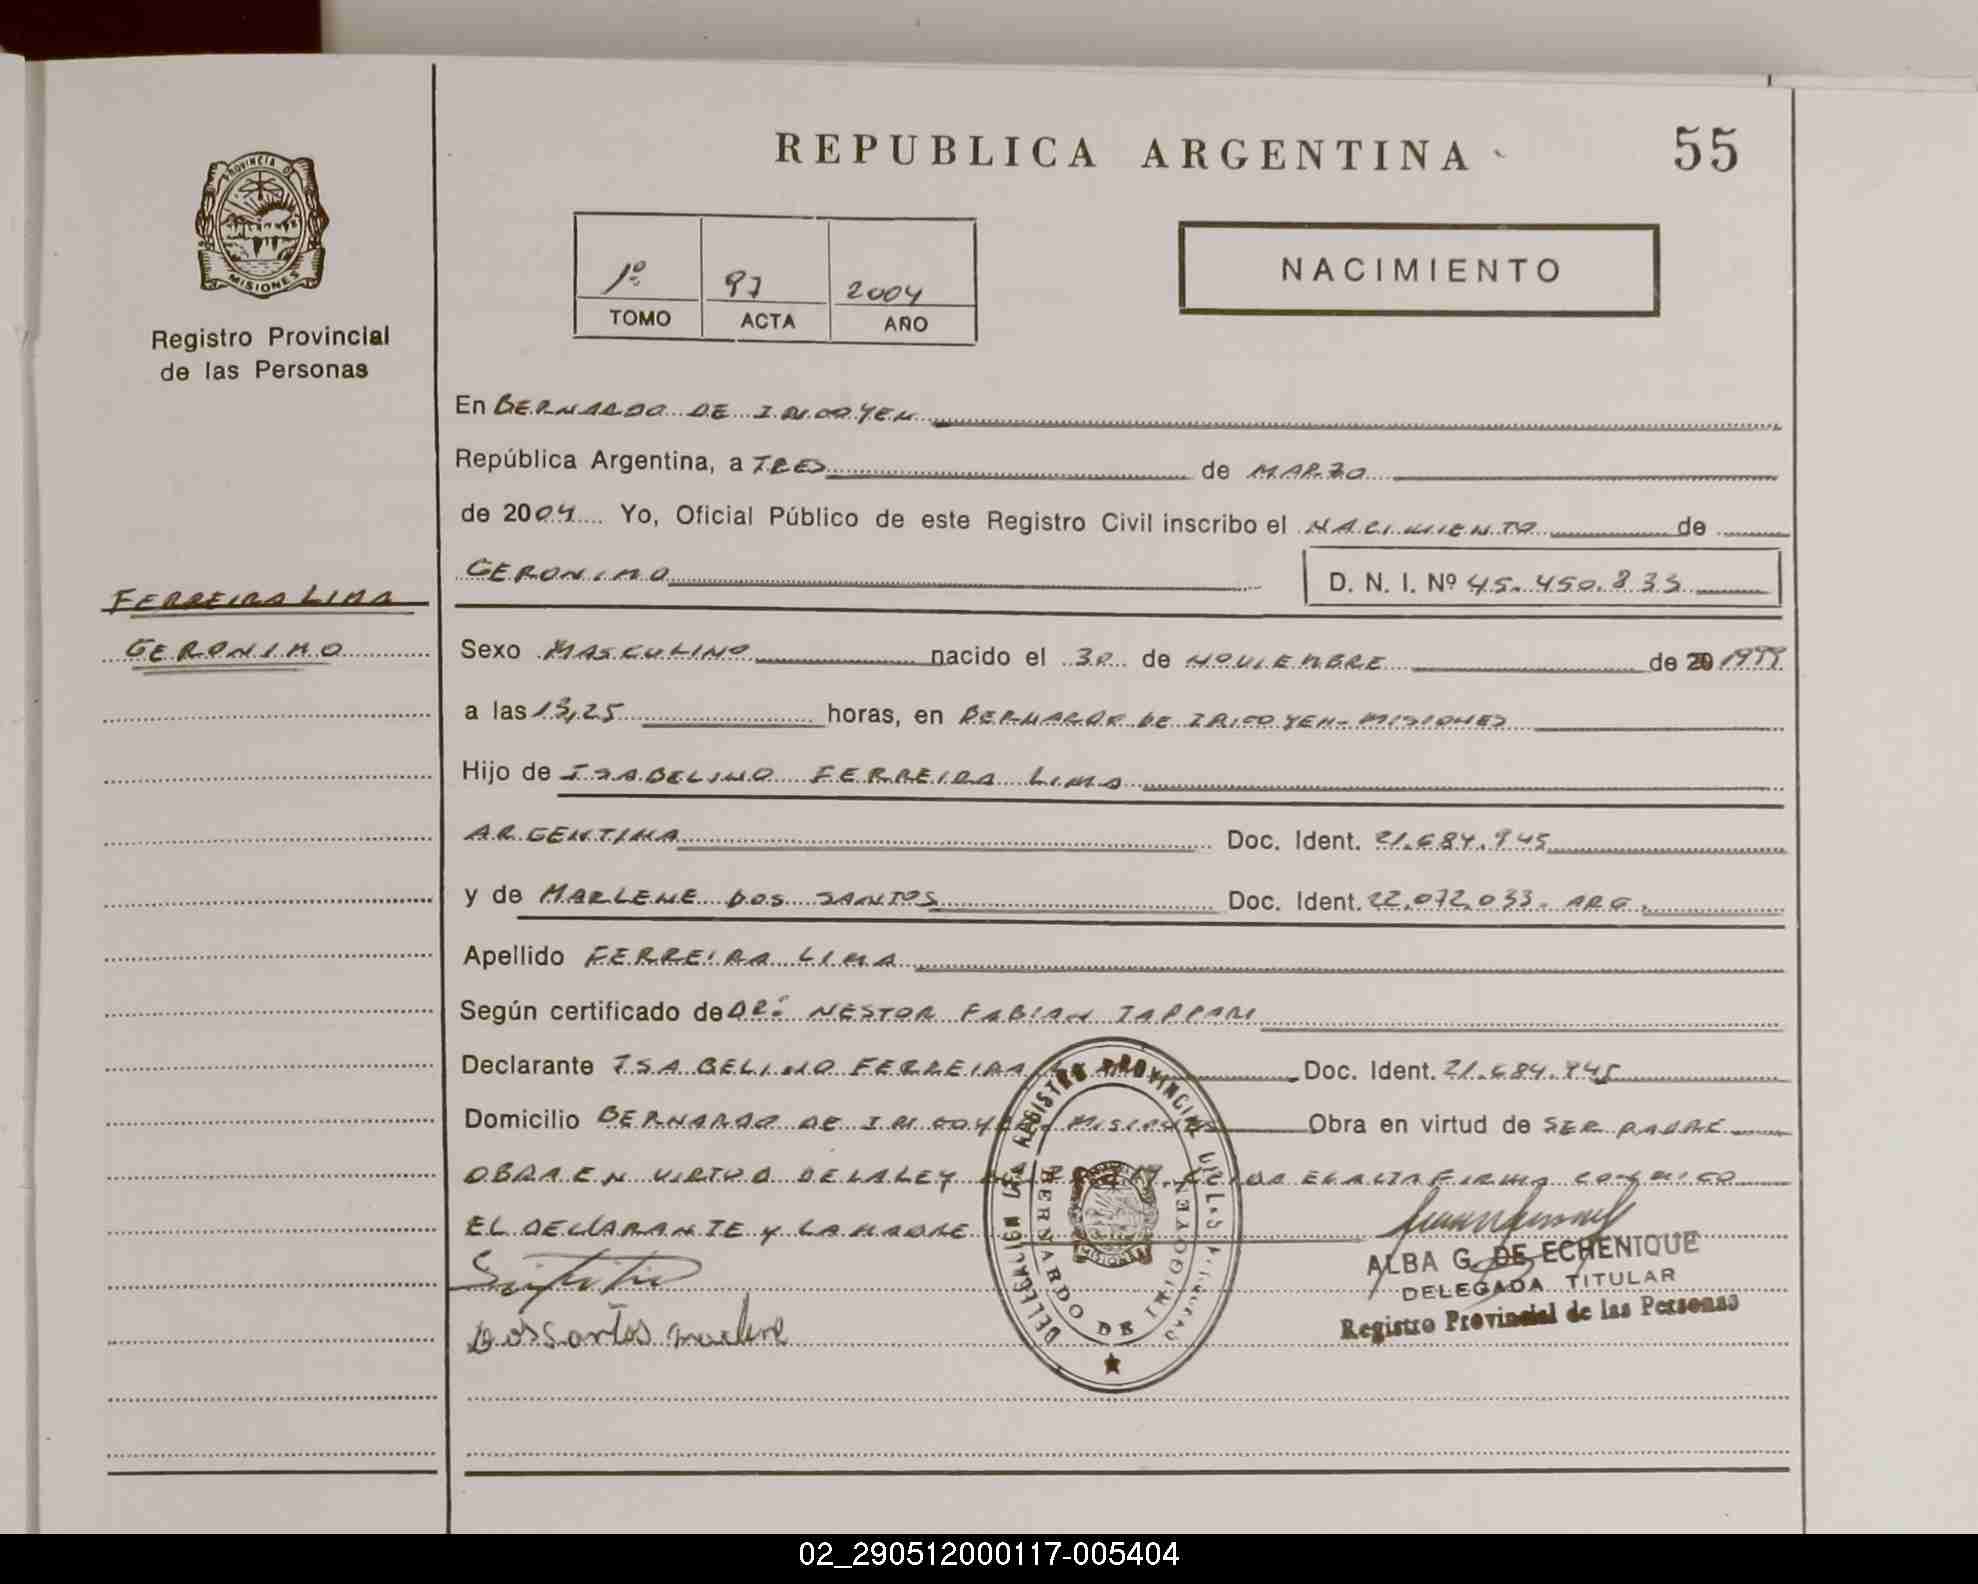 REPUBLICA ARGENTINA
55
PROVINCIA DE
MISIONES
Registro Provincial
de las Personas
1º
97
2004
TOMO
ACTA
AÑO
NACIMIENTO
En BERNARDO DE IRIGOYEN
República Argentina, a TRES de MARZO
de 2004 Yo, Oficial Público de este Registro Civil inscribo el NACIMIENTO de
GERONIMO D. N. I. Nº 45.450.833
FERREIRA LIMA
GERONIMO
Sexo MASCULINO nacido el 30 de NOVIEMBRE de 20 1999
a las 13,25 horas, en BERNARDO DE IRIGOYEN - MISIONES
Hijo de ISABELINO FERREIRA LIMA
ARGENTINA Doc. Ident. 21.684.945
y de MARLENE DOS SANTOS Doc. Ident. 22.072.033. ARG.
Apellido FERREIRA LIMA
Según certificado de DR: NESTOR FABIAN
Declarante ISABELINO FERREIRA LIMA Doc. Ident. 21.684.945
Domicilio BERNARDO DE IRIGOYEN - MISIONES Obra en virtud de SER PADRE
OBRA EN VIRTUD DE LA LEY LEIDA EL ACTA FIRMA CONMIGO
EL DECLARANTE Y LA MADRE
Dos Santos Marlene
DELEGACION DEL REGISTRO PROVINCIAL DE LAS PERSONAS
BERNARDO DE IRIGOYEN
MISIONES
ALBA G. DE ECHENIQUE
DELEGADA TITULAR
Registro Provincial de las Personas
02_290512000117-005404